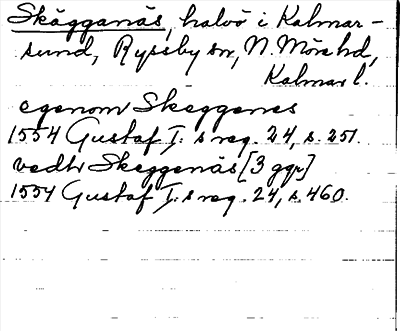 Skägganäs, halvö i Kalmar-
sund, Ryssby sn, N. Möre hd,
Kalmar l.
egenom Skeggenes
1554 Gustaf I:s reg. 24, s. 251.
vedh Skeggenäs [3 ggr]
1554 Gustaf I:s reg. 24, s. 460.